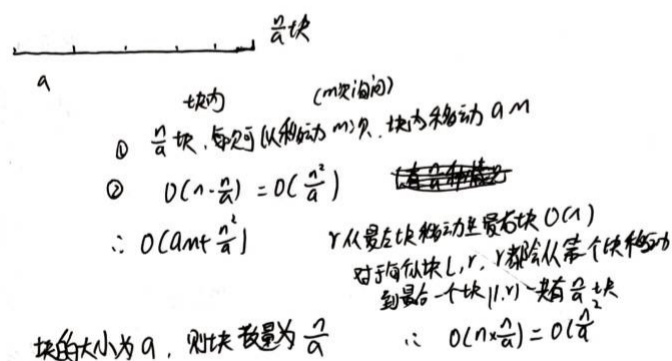 n/a 块
a
块内 (m次询问)
① n/a 块，每次可以移动 m次，块内移动 am
② O(n·n/a) = O(n²/a)
∴ O(am+n²/a)
r从最左块移动至最右块 O(n)
对于每个块 l, r, r都会从第一个块移动
到最后一个块 (l,r) 一共有 n/a 块
∴ O(n×n/a) = O(n²/a)
块的大小为 a，则块数量为 n/a